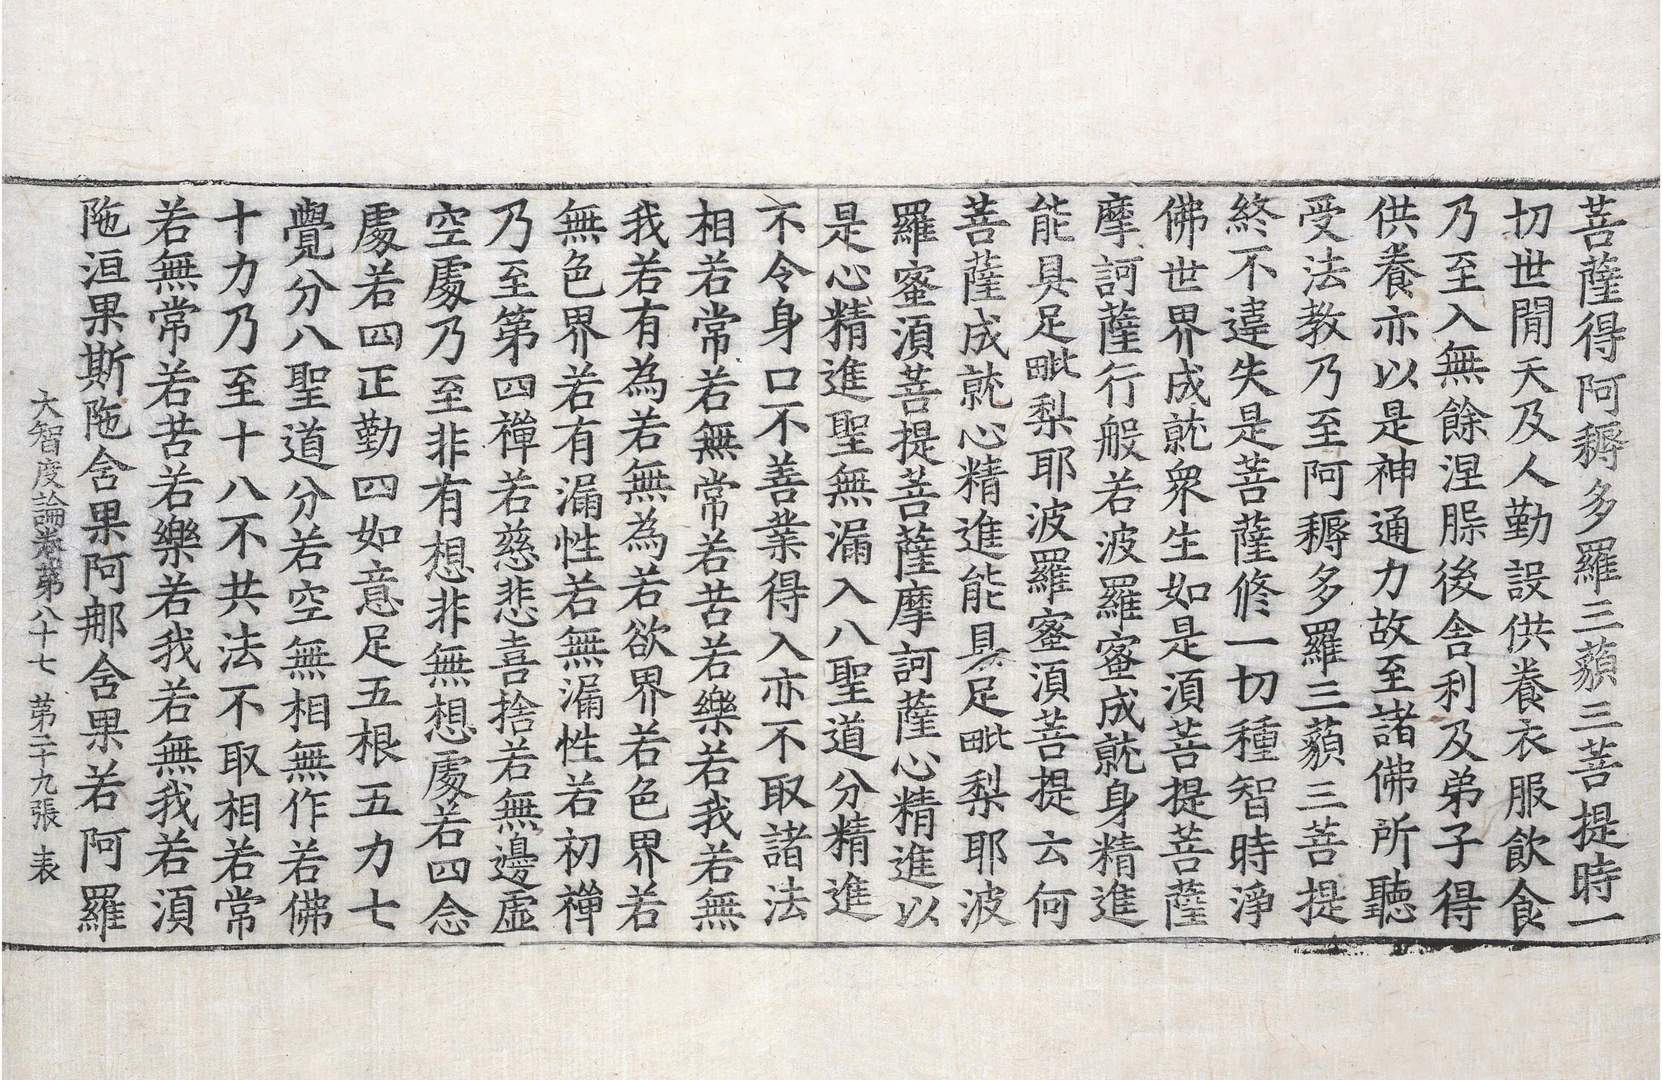 菩薩得阿耨多羅三藐三菩提時一
切世閒天及人勤設供養衣服飲食
乃至入無餘涅槃後舍利及弟子得
供養亦以是神通力故至諸佛所聽
受法教乃至阿耨多羅三藐三菩提
終不違失是菩薩修一切種智時淨
佛世界成就衆生如是須菩提菩薩
摩訶薩行般若波羅蜜成就身精進
能具足毗梨耶波羅蜜須菩提云何
菩薩成就心精進能具足毗梨耶波
羅蜜須菩提菩薩摩訶薩心精進以
是心精進聖無漏入八聖道分精進
不令身口不善業得入亦不取諸法
相若常若無常若苦若樂若我若無
我若有為若無為若欲界若色界若
無色界若有漏性若無漏性若初禪
乃至第四禪若慈悲喜捨若無邊虛
空處乃至非有想非無想處若四念
處若四正勤四如意足五根五力七
覺分八聖道分若空無相無作若佛
十力乃至十八不共法不取相若常
若無常若苦若樂若我若無我若須
陁洹果斯陁含果阿那含果若阿羅
大智度論卷第八十七 第二十九張 表